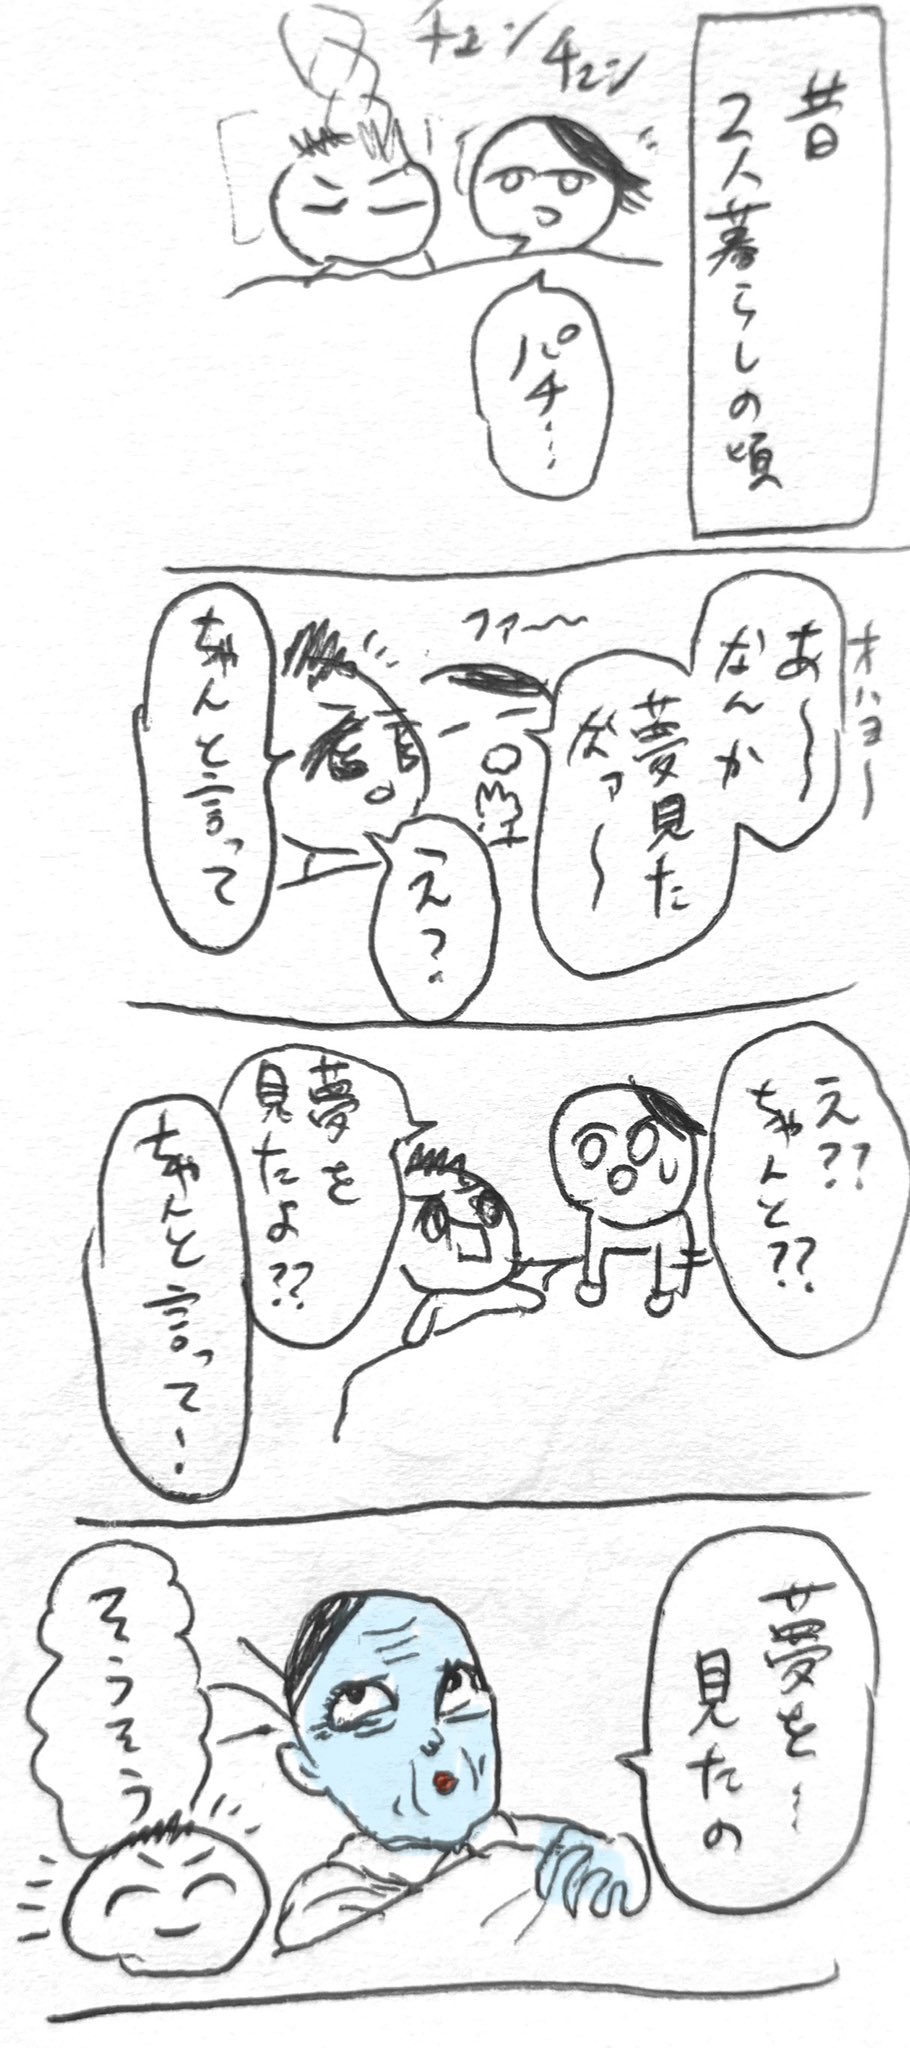 昔
2人暮らしの頃
チュン
チュン
パチ…
オハヨ〜
あ〜〜
なんか
夢見た
ファ〜〜
え?
ちゃんと言って
え??
ちゃんと??
夢を
見たよ??
ちゃんと言って…
夢を〜
見たの
そうそう